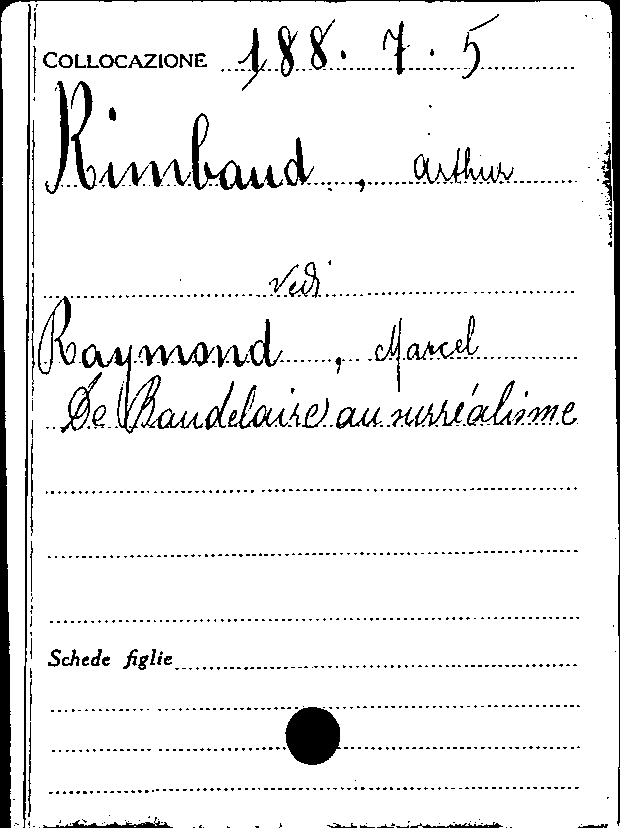 COLLOCAZIONE 188. 7. 5
Rimbaud, Arthur
vedi
Raymond, Marcel
De Baudelaire au surréalisme
Schede figlie